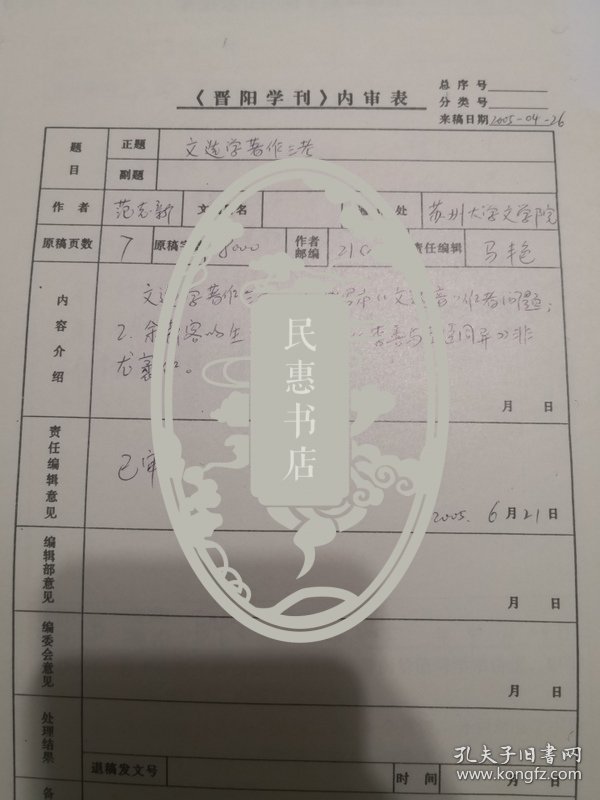 《晋阳学刊》内审表
总序号
分类号
来稿日期2005-04-26
题目
正题 文选学著作三考
副题
作者 范志新 文 名 处 苏州大学文学院
原稿页数 7 原稿字 8000 作者邮编 21 责任编辑 马艳
内容介绍
文选学著作 文选音 作者问题;
2. 余萧客的生 李善与 同异 非
尤袤作。
月 日
责任编辑意见
已审
2005. 6月21日
编辑部意见
月 日
编委会意见
月 日
处理结果
退稿发文号 时间 月 日
备
民惠书店
孔夫子旧书网
www.kongfz.com